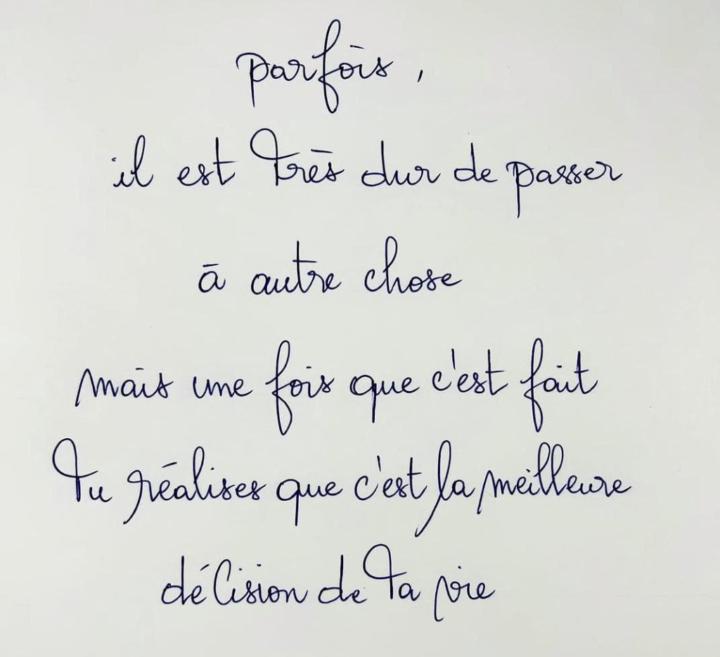 parfois,
il est très dur de passer
à autre chose
mais une fois que c'est fait
Tu réalises que c'est la meilleure
décision de Ta vie